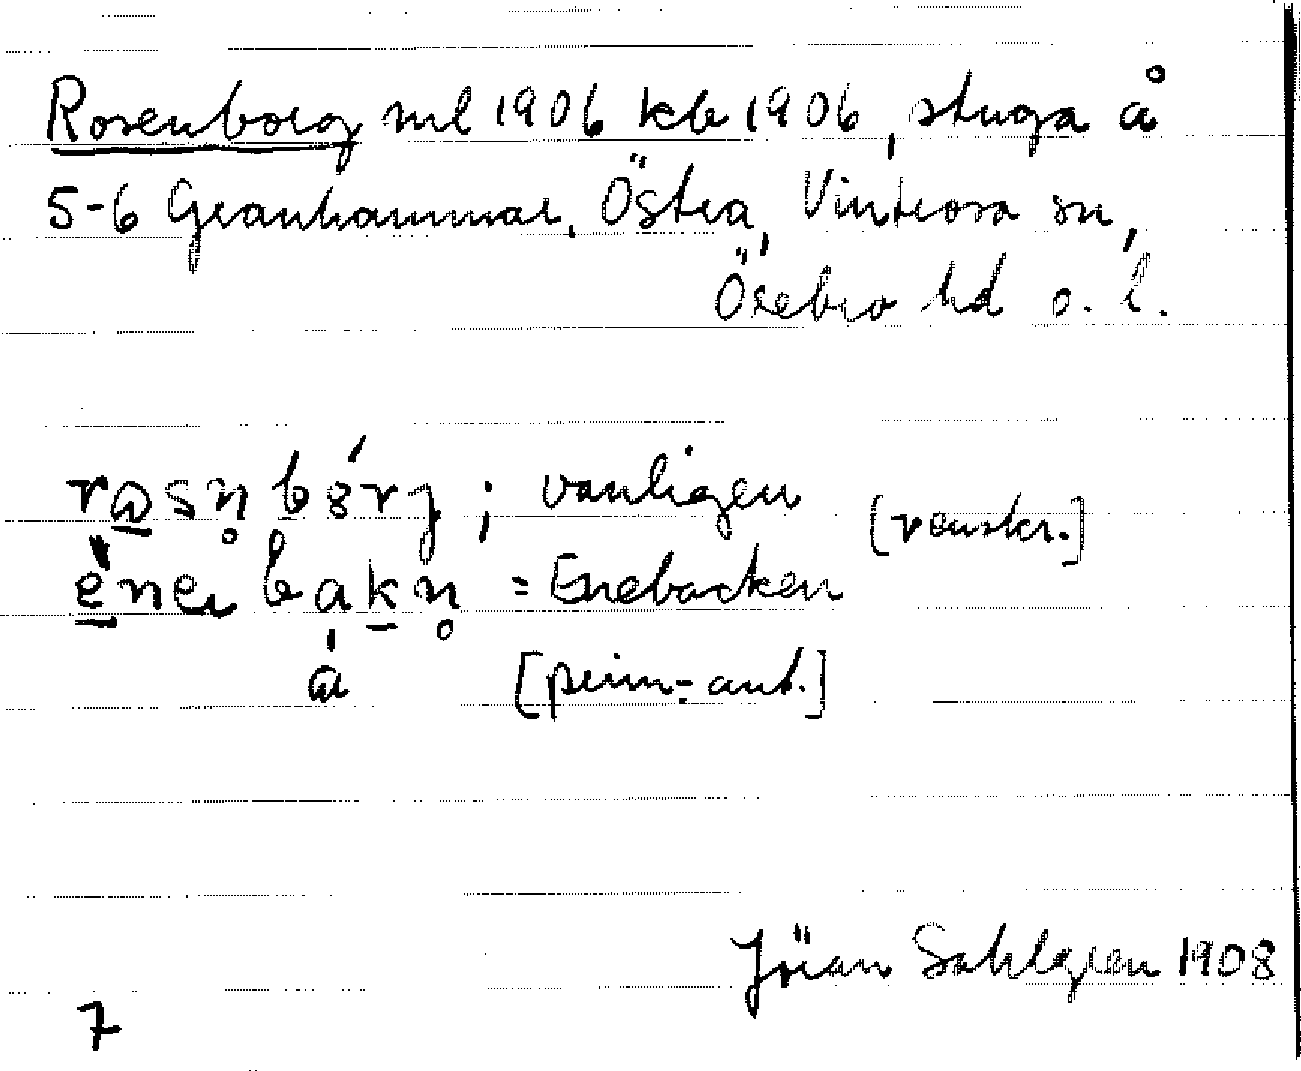 Rosenborg ml 1906 kb 1906, stuga å
5-6 Granhammar, Östra, Vintrosa sn,
Örebro hd o. l.
vanligen [renskr.]
= Enebacken
[prim.-ant.]
Jöran Sahlgren 1908
7